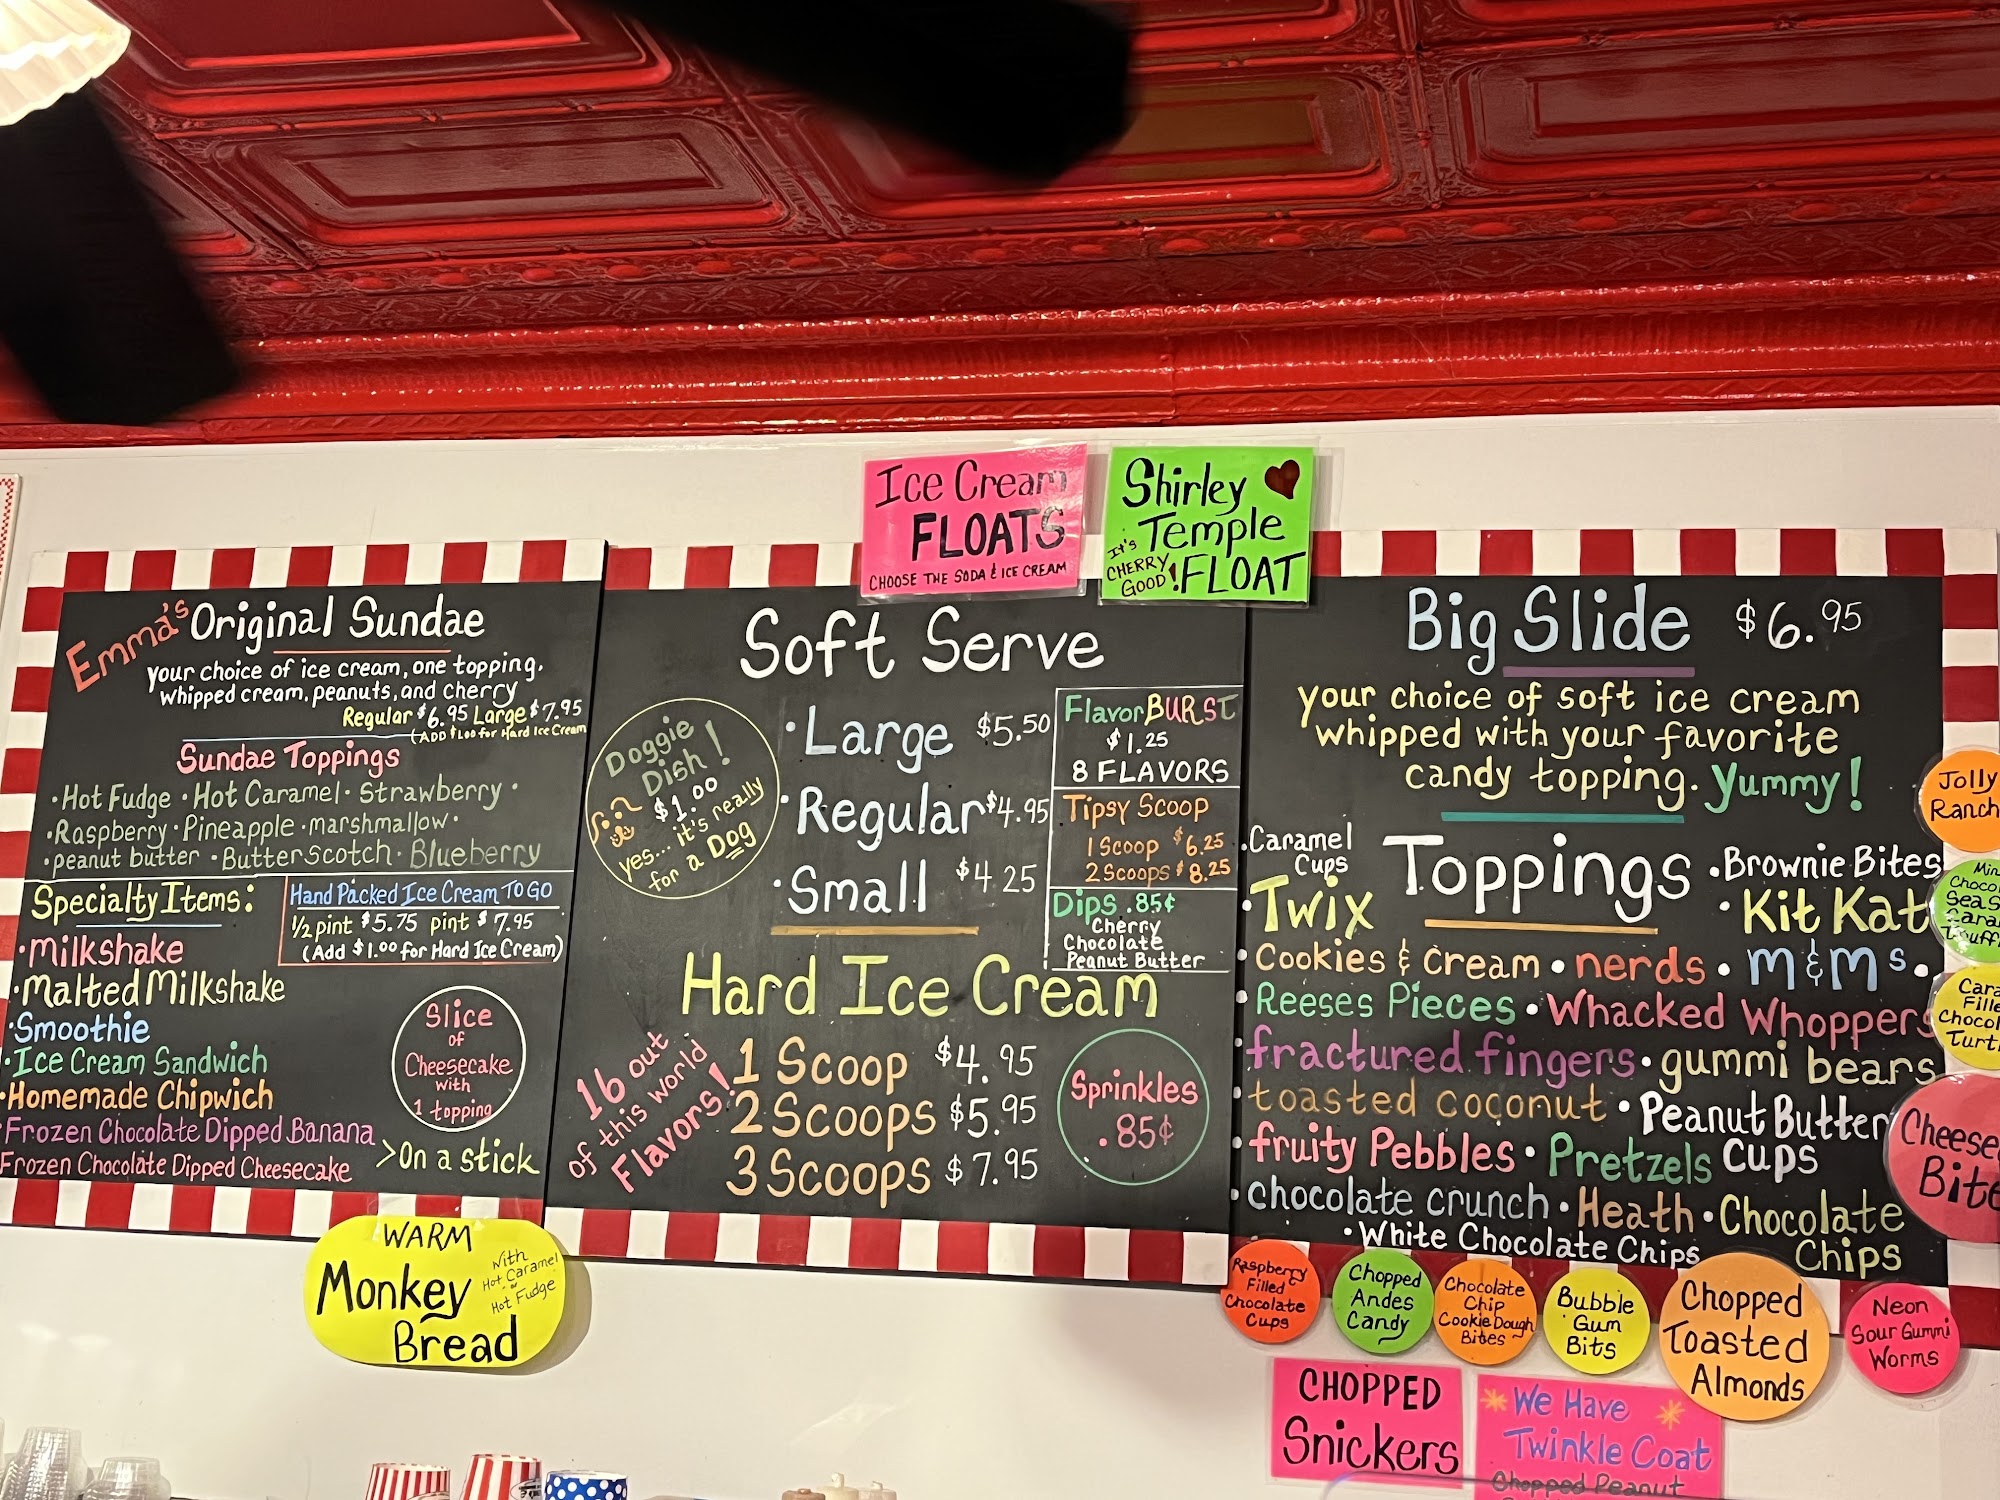 Ice Cream
FLOATS
CHOOSE THE SODA & ICE CREAM
Shirley
Temple
It's
CHERRY
GOOD!
FLOAT
Emma's Original Sundae
your choice of ice cream, one topping.
whipped cream, peanuts, and cherry
Regular $6.95 Large $7.95
(ADD $1.00 for Hard Ice Cream
Sundae Toppings
•Hot Fudge •Hot Caramel• Strawberry •
•Raspberry •Pineapple •marshmallow•
•peanut butter •Butterscotch• Blueberry
Specialty Items:
•Milkshake
•Malted Milkshake
•Smoothie
•Ice Cream Sandwich
•Homemade Chipwich
•Frozen Chocolate Dipped Banana
Frozen Chocolate Dipped Cheesecake
>On a stick
Hand Packed Ice Cream TO GO
1/2 pint $5.75 pint $7.95
(Add $1.00 for Hard Ice Cream)
Slice
of
Cheesecake
with
1 topping
WARM
Monkey
Bread
With
Hot Caramel
or
Hot Fudge
Soft Serve
Doggie
Dish!
$1.00
yes... it's really
for a Dog
•Large $5.50
•Regular $4.95
•Small $4.25
Flavor BURST
$1.25
8 FLAVORS
Tipsy Scoop
1 Scoop $6.25
2 Scoops $8.25
Dips .85¢
Cherry
Chocolate
Peanut Butter
Hard Ice Cream
16 out
of this world
Flavors!
1 Scoop $4.95
2 Scoops $5.95
3 Scoops $7.95
Sprinkles
.85¢
Big Slide $6.95
your choice of soft ice cream
whipped with your favorite
candy topping. Yummy!
Toppings
•Caramel
Cups
•Twix
•Brownie Bites
•Kit Kat
•Cookies & Cream •nerds • m&ms •
•Reeses Pieces •Whacked Whoppers
•fractured fingers •gummi bears
•toasted coconut •Peanut Butter
Cups
•fruity Pebbles •Pretzels
•chocolate crunch •Heath •Chocolate
Chips
•White Chocolate Chips
Jolly
Cheese
Raspberry
Filled
Chocolate
Cups
Chopped
Andes
Candy
Chocolate
Chip
Cookie Dough
Bites
Bubble
Gum
Bits
Chopped
Toasted
Almonds
Neon
Sour Gummi
Worms
CHOPPED
Snickers
We Have
Twinkle Coat
Chopped Peanut